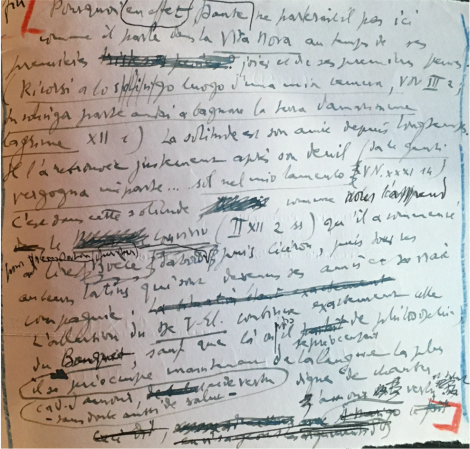 Pourquoi en effet, Dante ne parlerait-il pas ici
comme il parle dans la Vita Nova au temps de ses
premières joies et de ses premières peines
Ricorsi a lo solingo luogo d'una mia camera, V.N. III 2,
In solinga parte andai a bagnare la terra d'amarissime
lagrime XII 1) La solitude est son amie depuis longtemps
Il l'a retrouvée justement après son deuil
vergogna mi parte... sol nel mio lamento V.N. XXXI 14)
C'est dans cette solitude comme nous l'apprend
le Convivio (II XII 2 ss) qu'il a commencé
à lire Boèce d'abord, puis Cicéron, puis tous les
auteurs latins qui sont devenus ses amis et sa vraie
compagnie.
L'allusion du De V.El. continue exactement celle
du Banquet, sauf que là où il de philosophie
il se préoccupe maintenant de la langue la plus
c.à.d. d'amour, de vertu digne de chanter
sans doute aussi de salut amour vertu